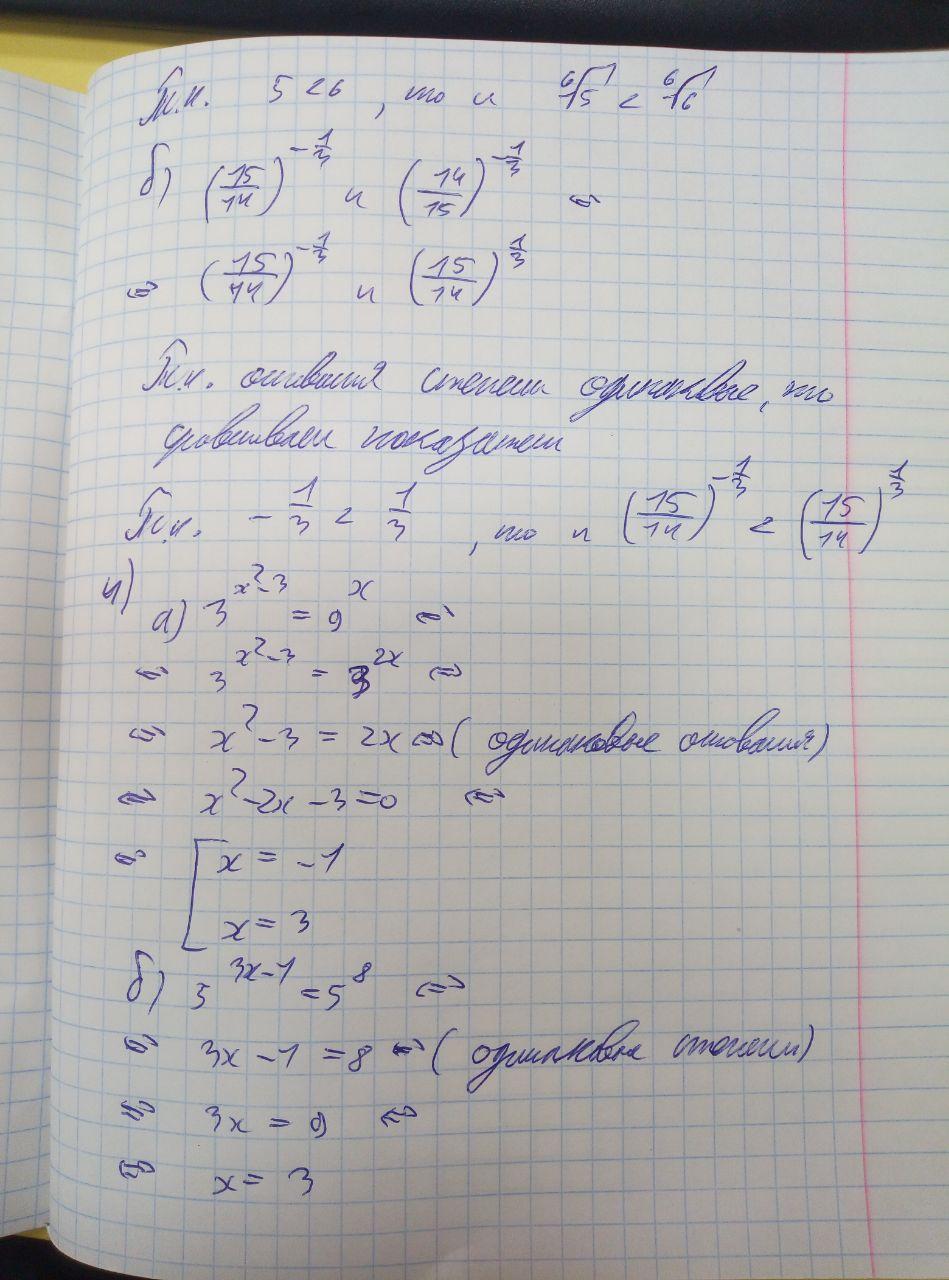 Т.к. 5 < 6, то и ⁶√5 < ⁶√6
б) (15/14)^(-1/3) и (14/15)^(-1/3) ⇔
⇔ (15/14)^(-1/3) и (15/14)^(1/3)
Т.к. основания степени одинаковые, то
сравниваем показатели
Т.к. -1/3 < 1/3, то и (15/14)^(-1/3) < (15/14)^(1/3)
4)
а) 3^(x²-3) = 9^x ⇔
⇔ 3^(x²-3) = 3^(2x) ⇔
⇔ x²-3 = 2x ⇔ (одинаковые основания)
⇔ x²-2x-3=0 ⇔
⇔ [ x = -1
x = 3
б) 5^(3x-1) = 5^8 ⇔
⇔ 3x-1 = 8 ⇔ (одинаковые степени)
⇔ 3x = 9 ⇔
⇔ x = 3